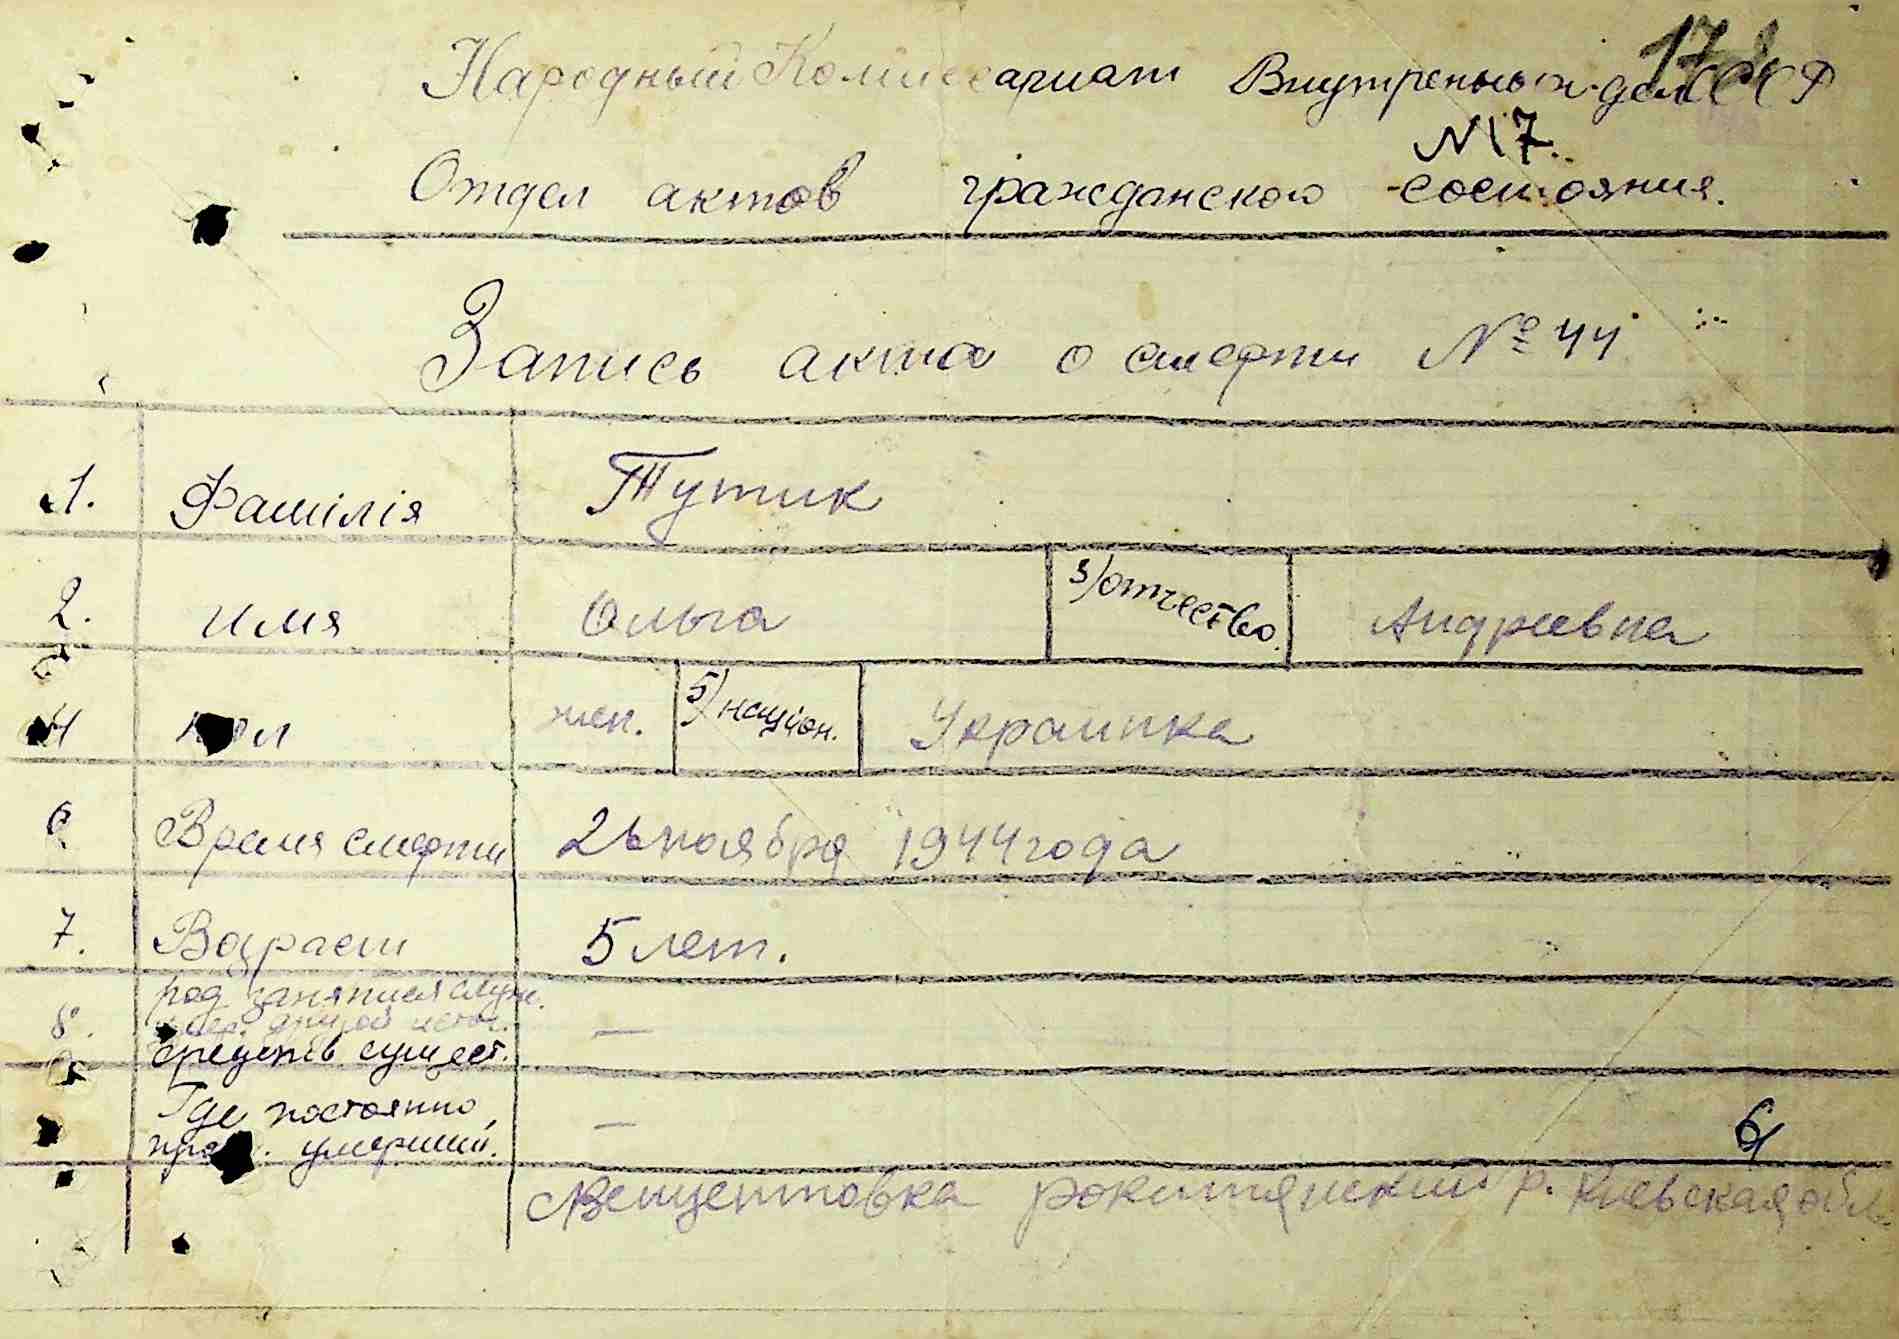 178
Народный Комиссариат Внутреных дел СССР
№17.
Отдел актов гражданского состояния.
Запись акта о смерти № 44
1. Фамілія Тутик
2. имя Ольга 3) отчество. Андреевна
4 пол жен. 5) націон. Украинка
6 Время смерти 26 ноября 1944 года
7. Возраст 5 лет.
8. род занятия служ.
другой источ. —
средств сущест.
Где постоянно
умерший. —
6
с Винцентовка рокитянский р. Киевская обл.